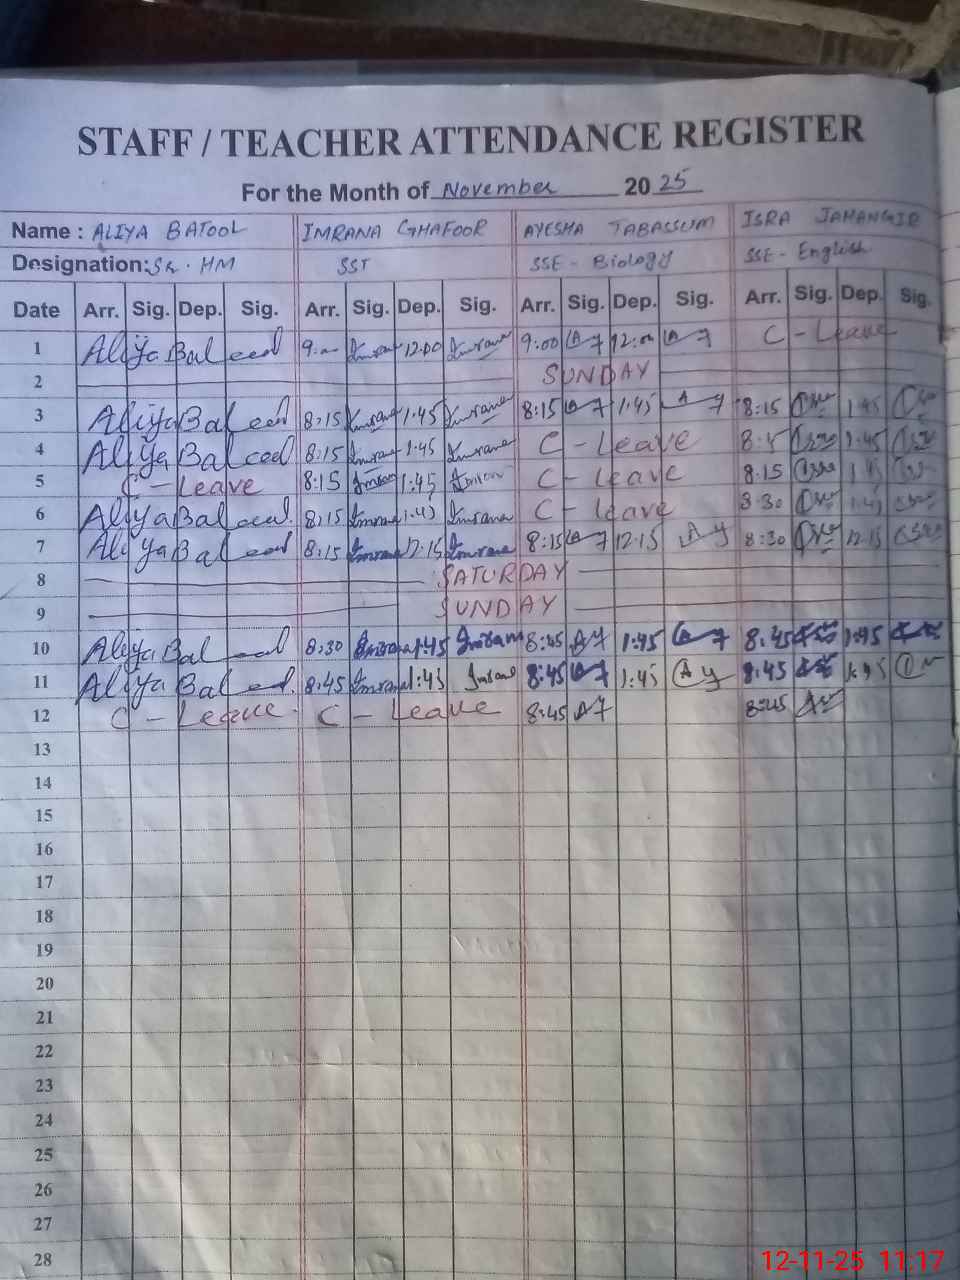 STAFF / TEACHER ATTENDANCE REGISTER
For the Month of November 20 25
Name : ALIYA BATOOL IMRANA GHAFOOR AYESHA TABASSUM ISRA JAHANGIR
Designation: Sr. HM SST SSE - Biology SSE - English
Date Arr. Sig. Dep. Sig. Arr. Sig. Dep. Sig. Arr. Sig. Dep. Sig. Arr. Sig. Dep. Sig.
1 Aliya Batool Imrana 12:00 Imrana 9:00 C - Leave
2 SUNDAY
3 Aliya Batool 8:15 Imrana 1:45 Imrana 8:15 1:45 8:15 1:45
4 Aliya Batool 8:15 Imrana 1:45 Imrana C - Leave 1:45
5 C - Leave 8:15 Imrana 1:45 C - Leave 8:15 1:45
6 Aliya Batool 8:15 Imrana 1:45 Imrana C - Leave 8:30 1:45
7 Aliya Batool 8:15 Imrana 12:15 Imrana 8:15 12:15 8:30 12:15
8 SATURDAY
9 SUNDAY
10 Aliya Batool 8:30 Imrana 1:45 Imrana 8:45 1:45 8:45 1:45
11 Aliya Batool 8:45 Imrana 1:45 Imrana 8:45 1:45 8:45 1:45
12 C - Leave C - Leave 8:45 8:45
13
14
15
16
17
18
19
20
21
22
23
24
25
26
27
28
12-11-25 11:17